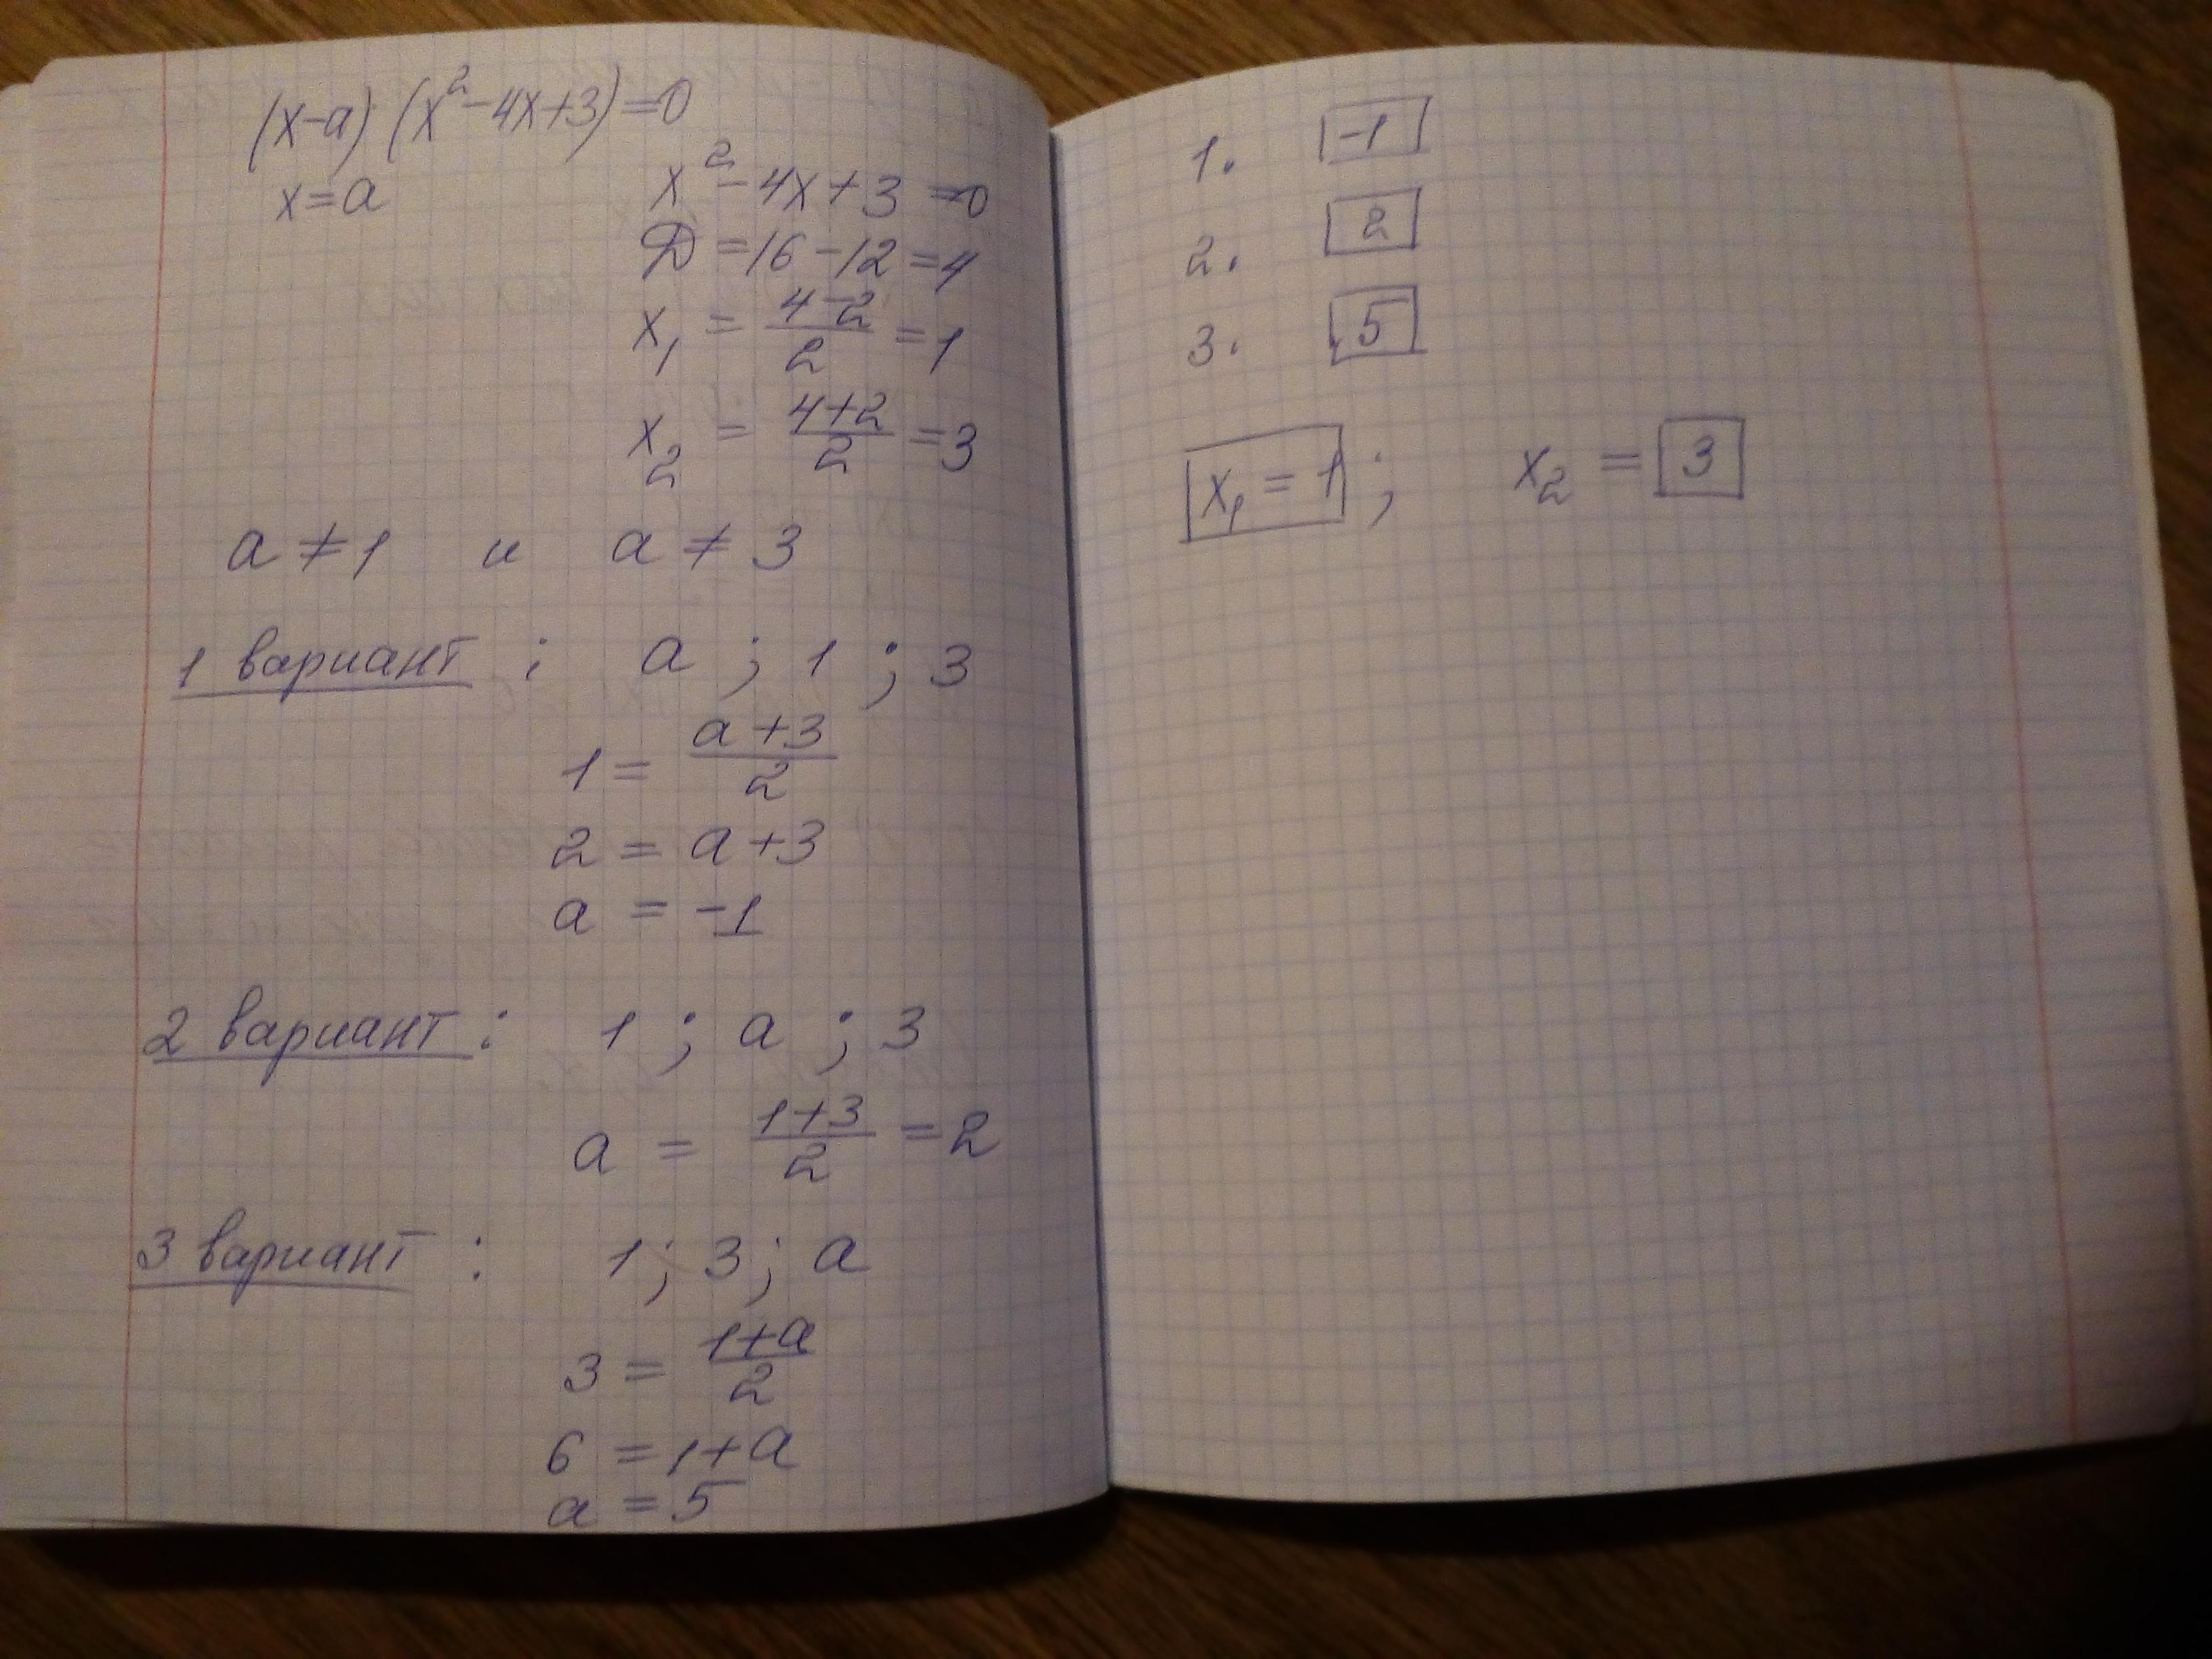 (x-a)(x²-4x+3)=0
x=a
x²-4x+3=0
D=16-12=4
x₁ = (4-2)/2 = 1
x₂ = (4+2)/2 = 3
a≠1 и a≠3
1 вариант : a ; 1 ; 3
1 = (a+3)/2
2 = a+3
a = -1
2 вариант : 1 ; a ; 3
a = (1+3)/2 = 2
3 вариант : 1 ; 3 ; a
3 = (1+a)/2
6 = 1+a
a = 5
1. -1
2. 2
3. 5
x₁ = 1 ; x₂ = 3